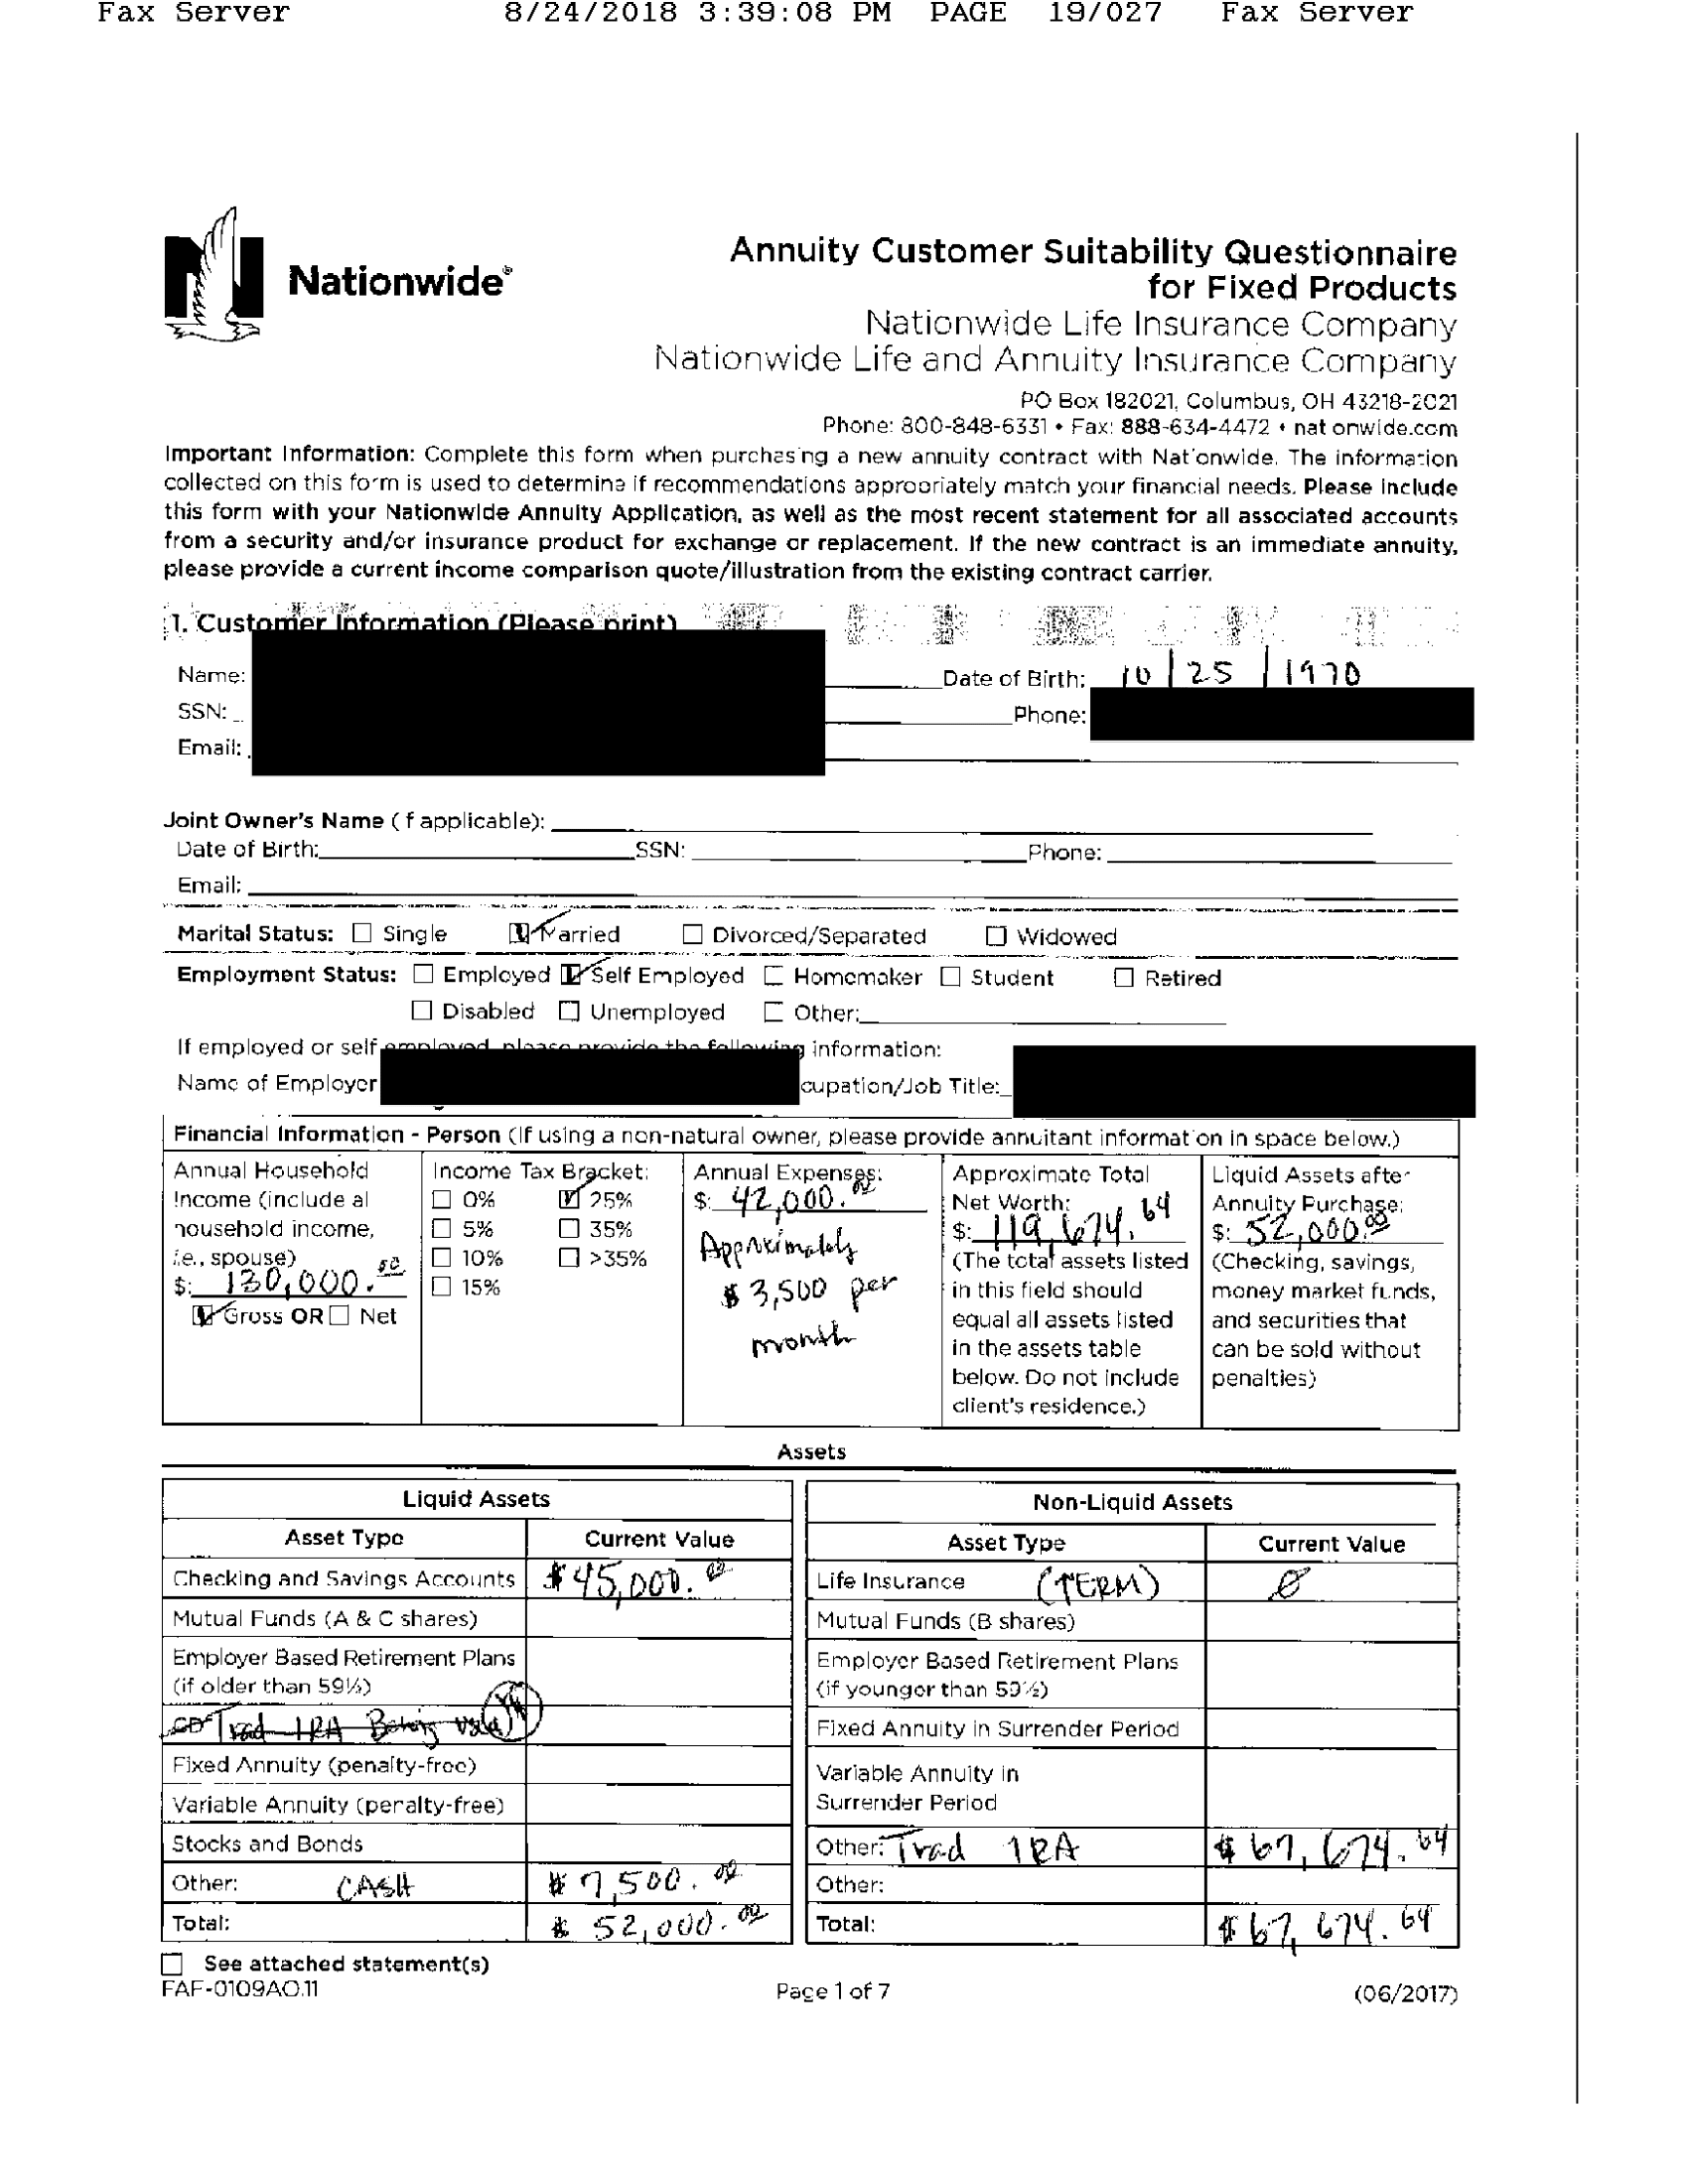 Fax Server 8/24/2018 3:39:08 PM PAGE 19/027 Fax Server
Nationwide®
Annuity Customer Suitability Questionnaire
for Fixed Products
Nationwide Life Insurance Company
Nationwide Life and Annuity Insurance Company
PO Box 182021, Columbus, OH 43218-2021
Phone: 800-848-6331 • Fax: 888-634-4472 • nationwide.com
Important Information: Complete this form when purchasing a new annuity contract with Nationwide. The information
collected on this form is used to determine if recommendations appropriately match your financial needs. Please include
this form with your Nationwide Annuity Application, as well as the most recent statement for all associated accounts
from a security and/or insurance product for exchange or replacement. If the new contract is an immediate annuity,
please provide a current income comparison quote/illustration from the existing contract carrier.
1. Customer Information (Please print)
Name: Date of Birth: 10/25/1970
SSN: Phone:
Email:
Joint Owner's Name (if applicable):
Date of Birth: SSN: Phone:
Email:
Marital Status: ☐ Single ☑ Married ☐ Divorced/Separated ☐ Widowed
Employment Status: ☐ Employed ☑ Self Employed ☐ Homemaker ☐ Student ☐ Retired
☐ Disabled ☐ Unemployed ☐ Other:
If employed or self employed, please provide the following information:
Name of Employer cupation/Job Title:
Financial Information - Person (If using a non-natural owner, please provide annuitant information in space below.)
Annual Household Income (include al household income, i.e., spouse)
$: 130,000.
☑ Gross OR ☐ Net
Income Tax Bracket:
☐ 0% ☑ 25%
☐ 5% ☐ 35%
☐ 10% ☐ >35%
☐ 15%
Annual Expenses:
$: 42,000.00
Approximately
$ 3,500 per
month
Approximate Total
Net Worth:
$: 119,674.64
(The total assets listed
in this field should
equal all assets listed
in the assets table
below. Do not include
client's residence.)
Liquid Assets after
Annuity Purchase:
$: 52,000.00
(Checking, savings,
money market funds,
and securities that
can be sold without
penalties)
Assets
Liquid Assets
Asset Type Current Value
Checking and Savings Accounts $45,000.00
Mutual Funds (A & C shares)
Employer Based Retirement Plans
(if older than 59½)
CD Trad IRA
Fixed Annuity (penalty-free)
Variable Annuity (penalty-free)
Stocks and Bonds
Other: CASH $7,500.00
Total: $ 52,000.00
Non-Liquid Assets
Asset Type Current Value
Life Insurance (TERM) 0
Mutual Funds (B shares)
Employer Based Retirement Plans
(if younger than 59½)
Fixed Annuity in Surrender Period
Variable Annuity in
Surrender Period
Other: Trad IRA $67,674.64
Other:
Total: $67,674.64
☐ See attached statement(s)
FAF-0109AO.11 Page 1 of 7 (06/2017)